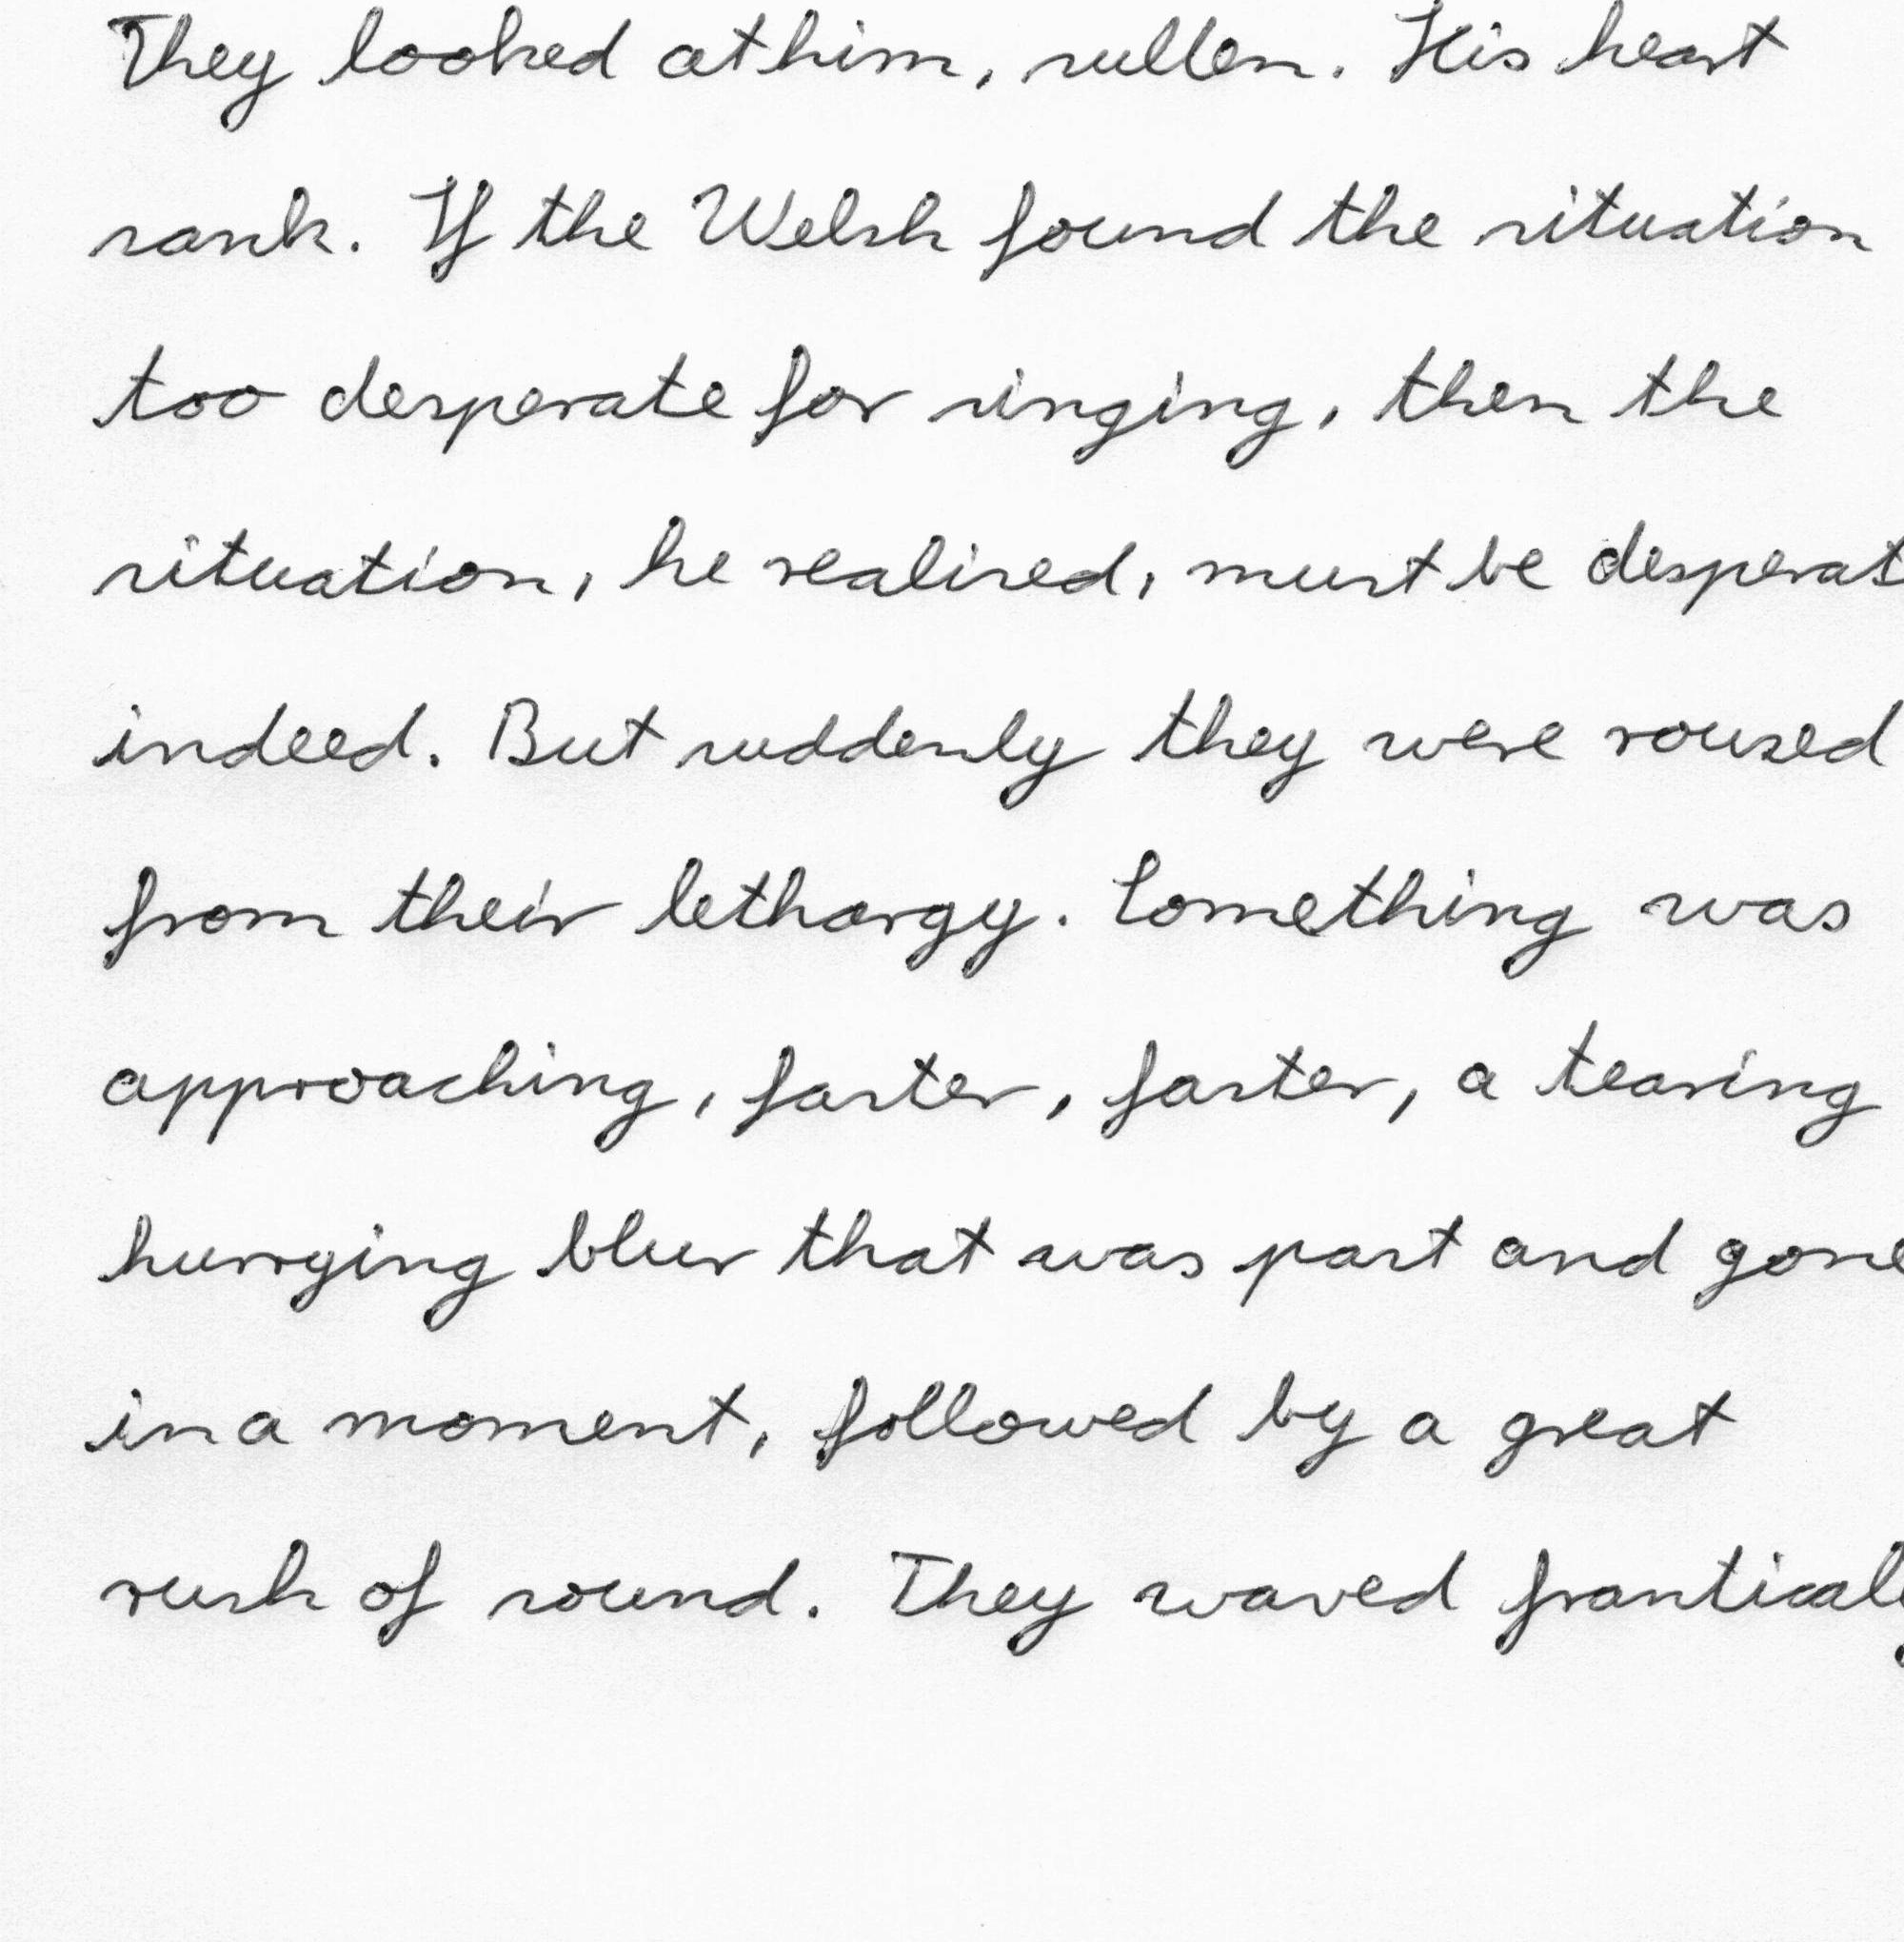 They looked at him, sullen. His heart
sank. If the Welsh found the situation
too desperate for singing, then the
situation, he realised, must be desperat
indeed. But suddenly they were roused
from their lethargy. Something was
approaching, faster, faster, a tearing
hurrying blur that was past and gone
in a moment, followed by a great
rush of sound. They waved frantically